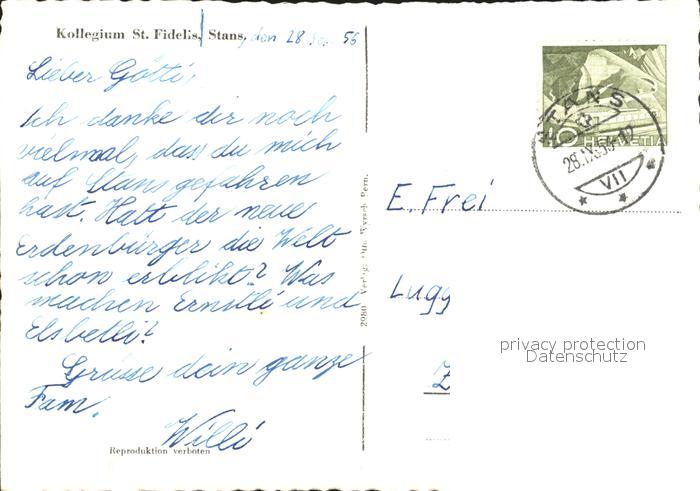 Kollegium St. Fidelis, Stans, den 28 Sep. 56
Lieber Götti,
Ich danke dir noch
vielmal, dass du mich
auf Stans gefahren
hast. Hatt der neue
Erdenbürger die Welt
schon erblikt? Was
machen Ernstli und
Elsbethli?
Grüsse dein ganze
Fam.
Willi
Reproduktion verboten
2980 Verlag: Otto Wyrsch, Bern.
STANS
28.IX.56-17
VII
HELVETIA
E. Frei
Lugg
Z
privacy protection
Datenschutz